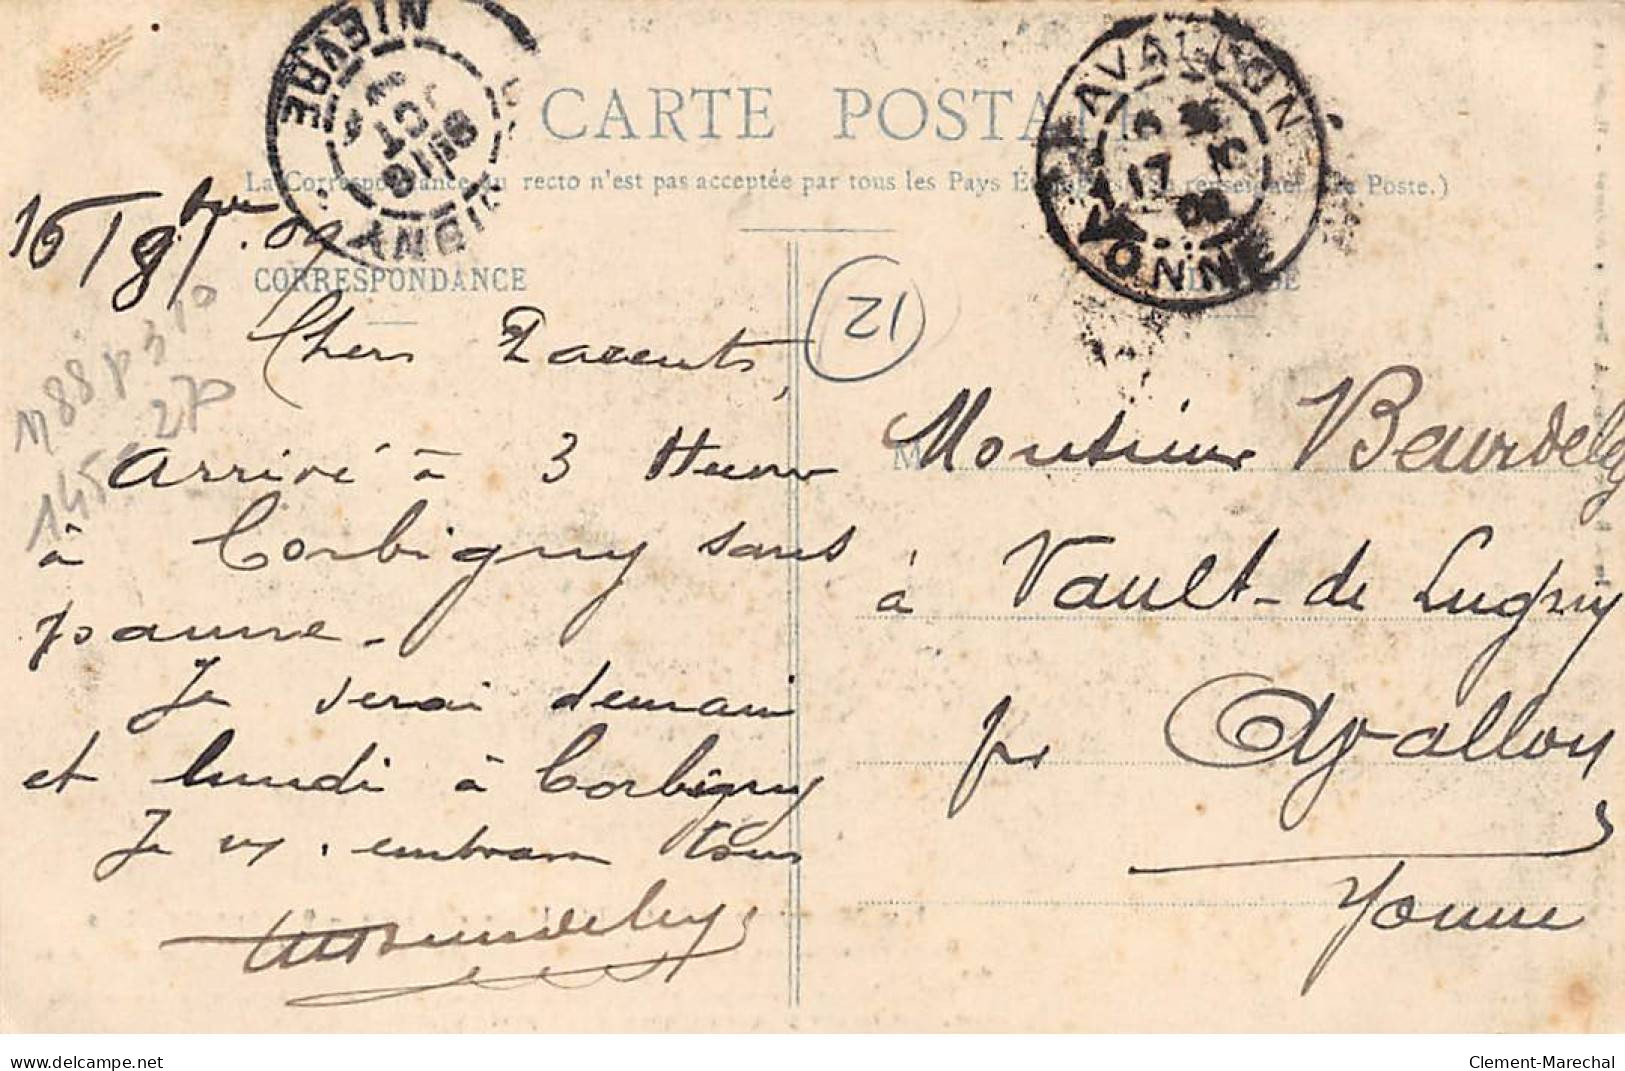 CARTE POSTALE
La Correspondance au recto n'est pas acceptée par tous les Pays Étrangers (Se renseigner à la Poste.)
NIEVRE
OCT
AVALLON
17
09
YONNE
16/8bre/.09
CORRESPONDANCE
12
Chers Parents,
Arrivé à 3 Heures
à Corbigny sans
panne.
Je serai demain
et lundi à Corbigny
Je vs. embrasse tous
M88p310
145 27P
Monsieur Beurdeley
à Vault-de Lugny
pr Avallon
Yonne
www.delcampe.net
Clement-Marechal